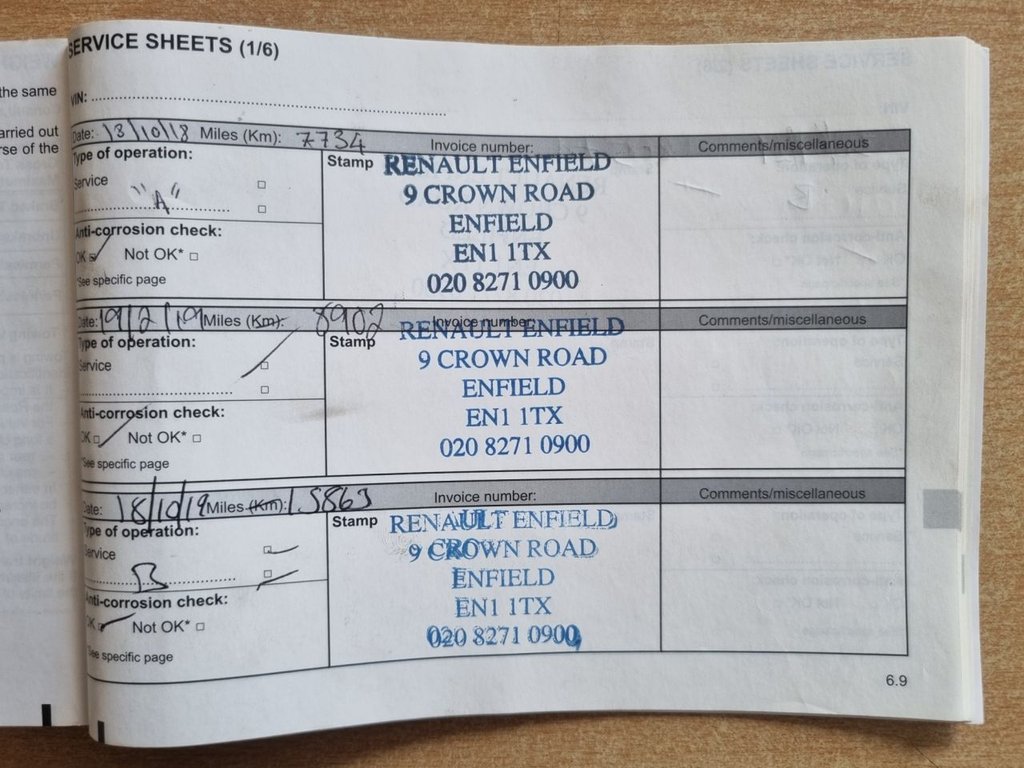 the same
arried out
rse of the
SERVICE SHEETS (1/6)
VIN:
Date: 13/10/18 Miles (Km): 7734 Invoice number: Comments/miscellaneous
Type of operation:
Service
"A"
Anti-corrosion check:
OK Not OK*
*See specific page
Stamp RENAULT ENFIELD
9 CROWN ROAD
ENFIELD
EN1 1TX
020 8271 0900
Date: 19/2/19 Miles (Km): 8902 Invoice number: Comments/miscellaneous
Type of operation:
Service
Anti-corrosion check:
OK Not OK*
*See specific page
Stamp RENAULT ENFIELD
9 CROWN ROAD
ENFIELD
EN1 1TX
020 8271 0900
Date: 18/10/19 Miles (Km): Invoice number: Comments/miscellaneous
Type of operation:
Service
B
Anti-corrosion check:
OK Not OK*
*See specific page
Stamp RENAULT ENFIELD
9 CROWN ROAD
ENFIELD
EN1 1TX
020 8271 0900
6.9